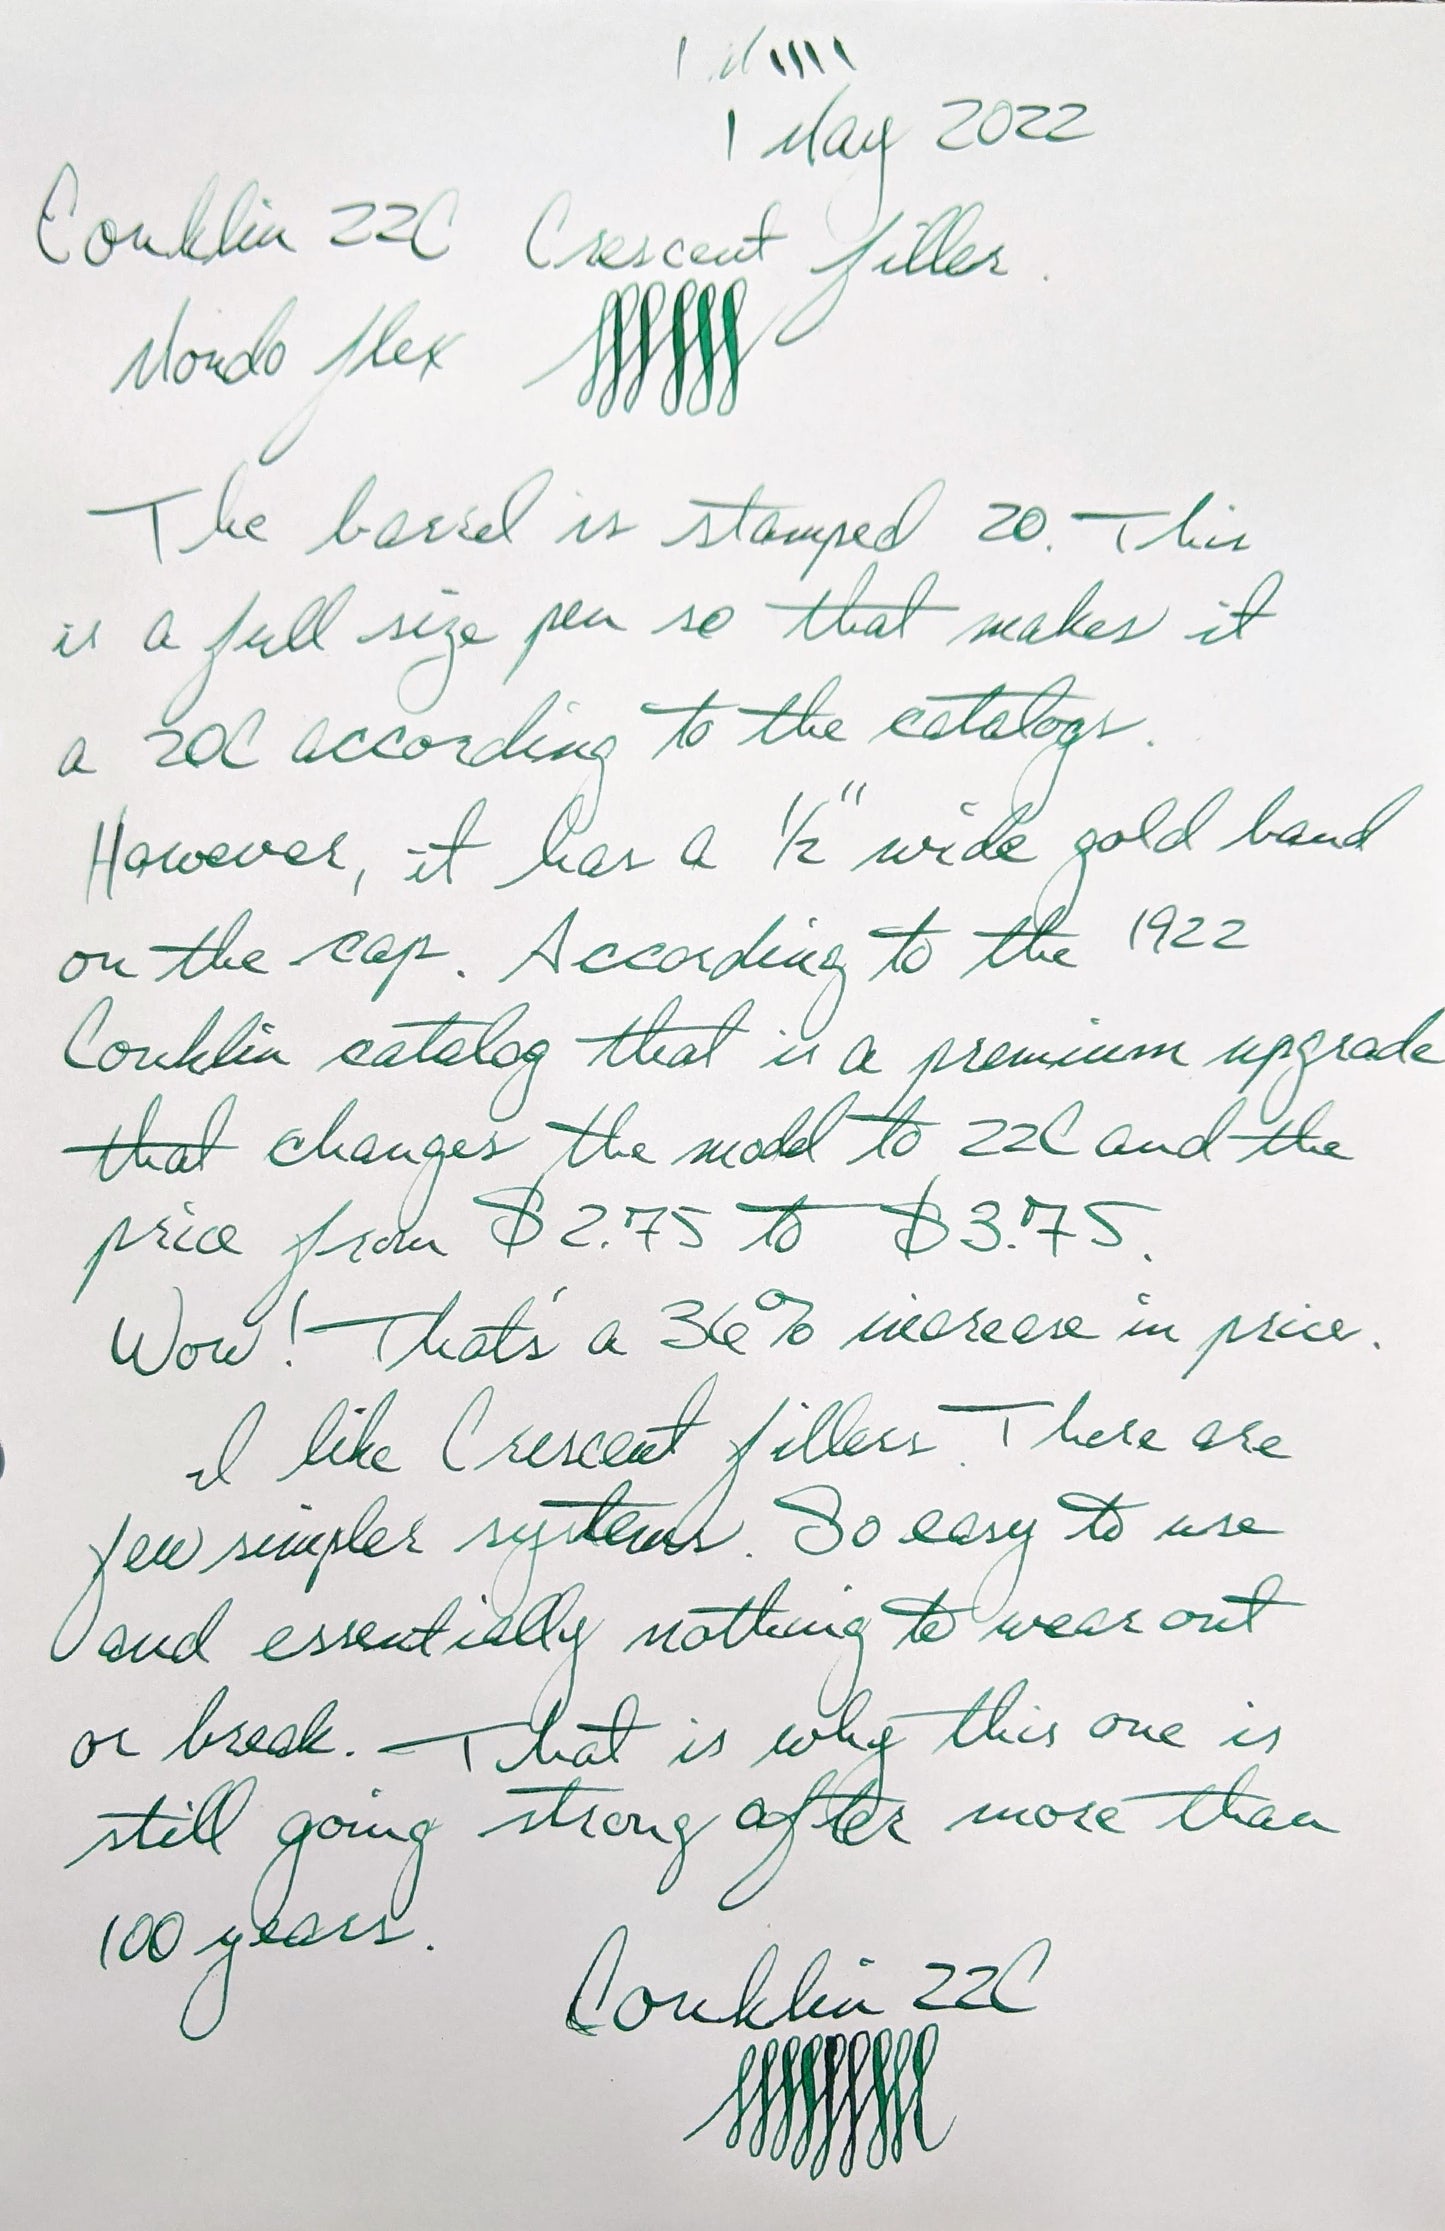 1 May 2022
Conklin 22C Crescent filler.
Mondo flex
The barrel is stamped 20. This
is a full size pen so that makes it
a 20C according to the catalogs.
However, it has a 1/2" wide gold band
on the cap. According to the 1922
Conklin catalog that is a premium upgrade
that changes the model to 22C and the
price from $2.75 to $3.75.
Wow! That's a 36% increase in price.
I like Crescent fillers. There are
few simpler systems. So easy to use
and essentially nothing to wear out
or break. That is why this one is
still going strong after more than
100 years.
Conklin 22C